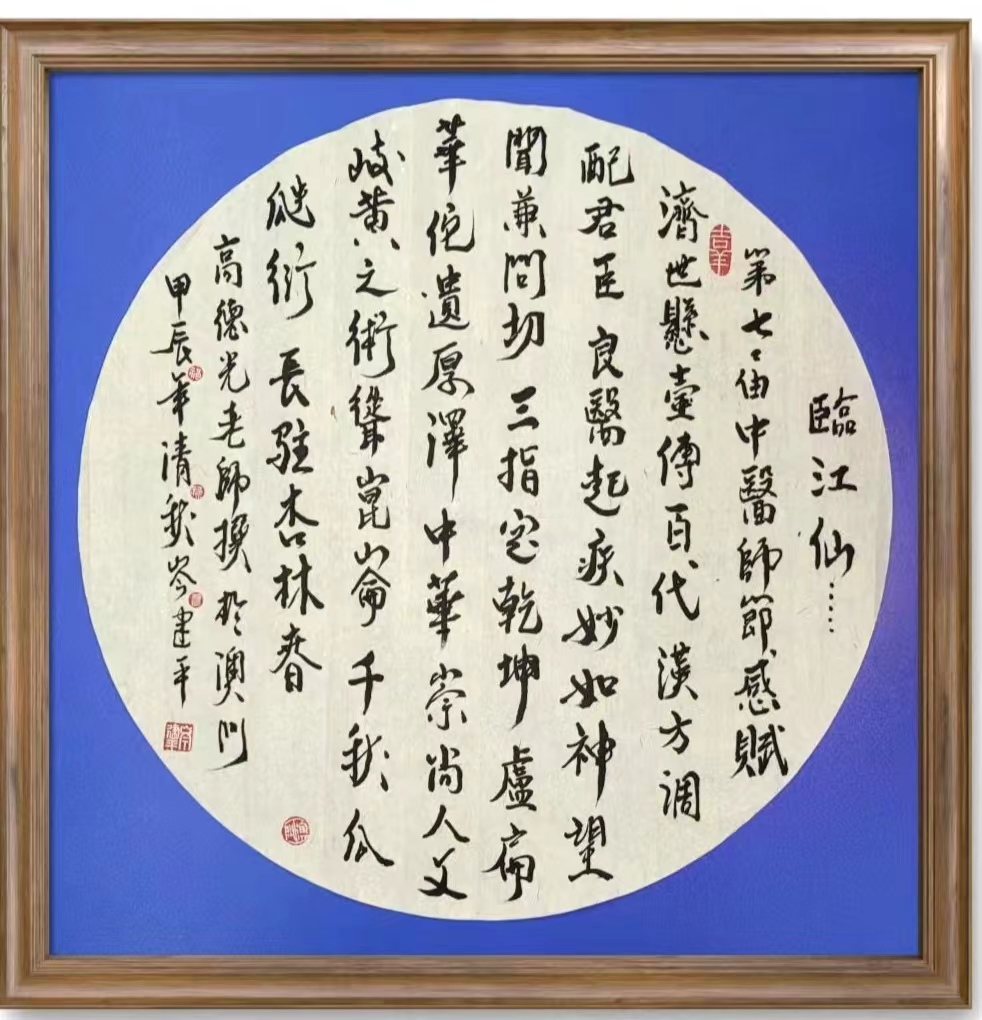 臨江仙……
第七々届中醫師節感賦
吉羊
濟世懸壺傳百代漢方調
配君臣良醫起疾妙如神望
聞兼問切三指定乾坤盧扁
華佗遺厚澤中華崇尚人文
岐黄之術聳崑崙千秋瓜
瓞衍長駐杏林春
高德光老師撰於澳門
甲辰年清秋岑建平